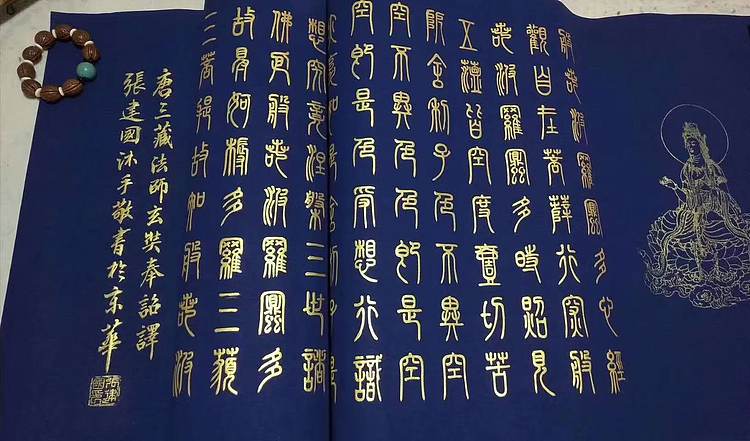 般若波羅蜜多心經
觀自在菩薩行深般
若波羅蜜多時照見
五蘊皆空度一切苦
厄舍利子色不異空
空不異色色即是空
空即是色受想行識
亦復如是舍利子是
想究竟涅槃三世諸
佛依般若波羅蜜多
故得阿耨多羅三藐
三菩提故知般若波
唐三藏法師玄奘奉詔譯
張建國沐手敬書於京華